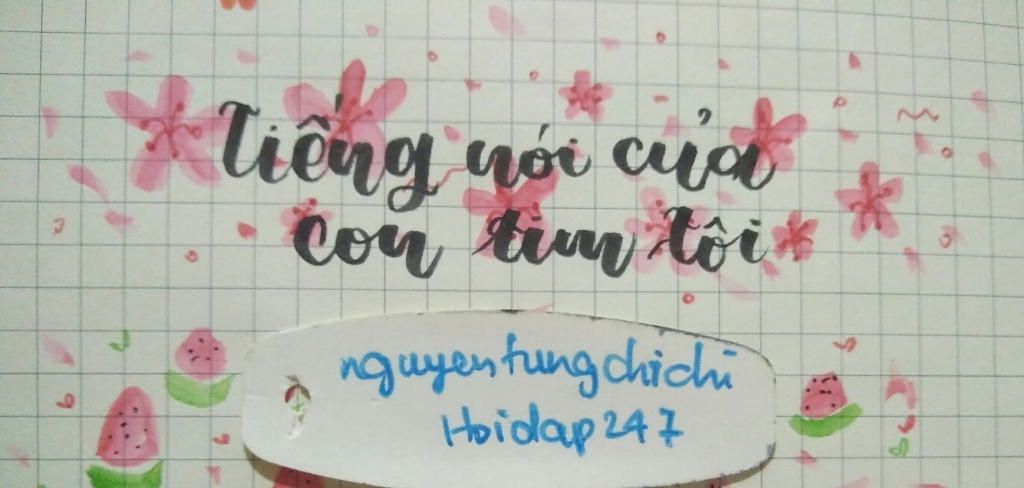 Tiếng nói của
con tim tôi
nguyentungchichi
Hoidap247